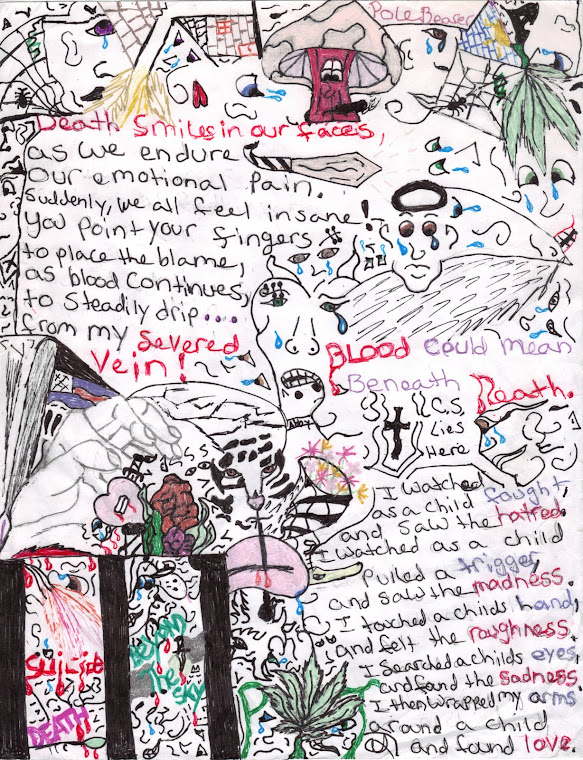 Pole Bearer
Death Smiles in our faces,
as we endure
our emotional pain.
Suddenly, we all feel insane!
You point your fingers
to place the blame,
as blood continues,
to steadily drip....
from my Severed
Vein!
BLOOD could mean
Beneath Death.
C.S.
Lies
Here
I watched
as a child fought,
and saw the hatred.
I watched as a child
pulled a trigger,
and saw the madness.
I touched a childs hand,
and felt the roughness.
I searched a childs eyes,
and found the sadness
I then wrapped my arms
around a child
and found love.
Suicide
DEATH
BEYOND
The
SKY